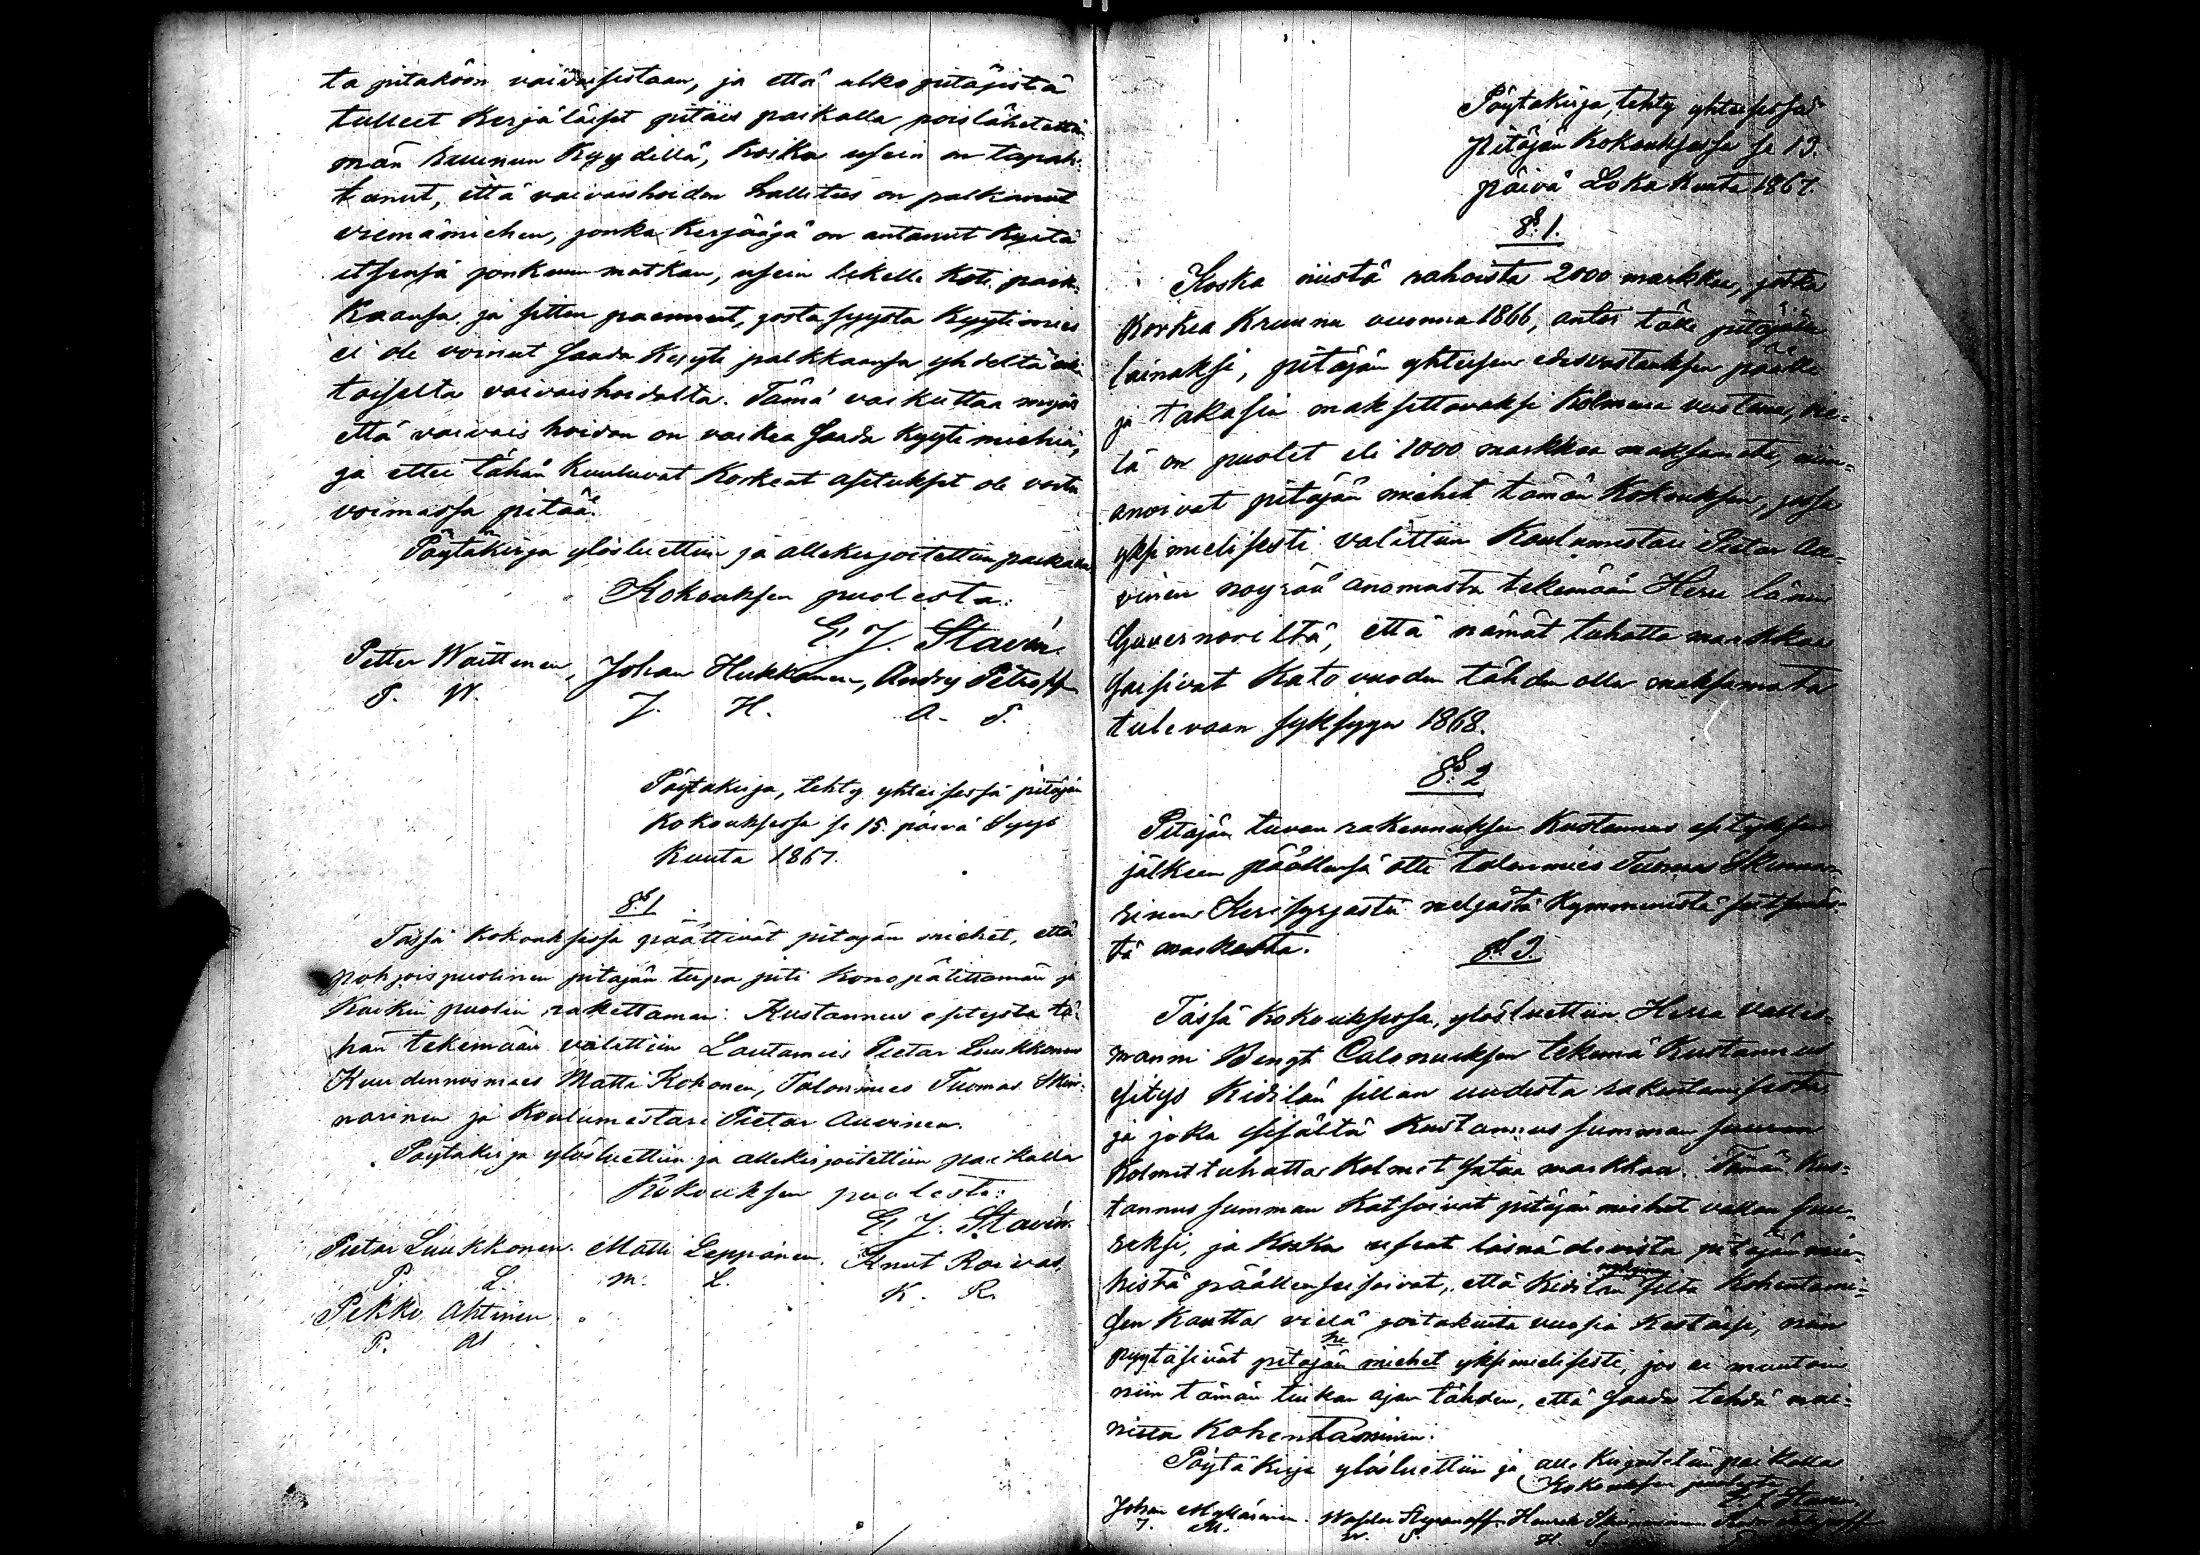 ta pitäköön vaivaisistaan, ja että ulko pitäjistä
tulleet Kerjäläiset pitäis paikalla poislähetettä-
män kruunun Kyydillä, koska usein on tapah-
tunut, että vaivaishoidon hallitus on palkannut
ven mies, jonka Kerjääjä on antanut Kyytä
itsensä jonkun matkan, usein likelle Koti paik-
kaansa ja sitten paennut, josta syystä Kyytimies
ei ole voinut saada Kyyti palkkaansa yhdeltä eikä
toiselta vaivaishoidolta. Tämä vaikuttaa myös
että vaivais hoidon on vaikea saada Kyyti miehiä,
ja ettei tähän Kuuluvat Korkeat asetukset ole
voimassa pitää.
Pöytäkirja ylösluettiin ja allekirjoitettiin paikalla
Kokouksen puolesta:
E. J. Stavén.
Petter Waittinen, Johan Hukkanen, Andrej Petroff
P. W. J. H. A. P.
Pöytäkirja, tehty yhteisessä pitäjän
Kokouksessa se 15. päivä Syys
Kuuta 1867.
§ 1
Tässä Kokouksessa päättivät pitäjän miehet, että
pohjoispuolinen pitäjän tupa piti Konopätittämän ja
Kaikin puolin rakettaman. Kustannus esitystä tä-
hän tekemään valittiin Lautamies Pietar Luukkonen
Kuudennusmies Matti Kokonen, Talonmies Tuomas Skin-
narinen ja Koulumestari Pietar Auvinen.
Pöytäkirja ylösluettiin ja allekirjoitettiin paikalla
Kokouksen puolesta:
E. J. Stavén.
Pietar Luukkonen. Matti Leppänen. Knut Roivas.
P. L. M. L. K. R.
Pekko Ahtinen
P. A
Pöytäkirja, tehty yhteisessä
Pitäjän Kokouksessa se 13.
päivä Loka Kuuta 1867.
§ 1.
Koska niistä rahoista 2000 markkaa, jotka
Korkea Kruunu vuonna 1866, antoi tälle pitäjälle
lainaksi, pitäjän yhteisen edesvastauksen päälle
ja takasin maksettavaksi Kolmena vuotena, vie-
lä on puolet eli 1000 markkaa maksamata, niin
anoivat pitäjän miehet tämän Kokouksen, jossa
yksimielisesti valittiin Koulumestari Pietar Au-
vinen nöyrää anomusta tekemään Herra läänin
Guvernöriltä, että nämät tuhatta markkaa
saisivat Kato vuoden tähden olla maksamata
tulevaan syksyyn 1868.
§ 2
Pitäjän tuvan rakennuksen Kustannus esityksen
jälkeen päällensä otti talonmies Tuomas Skinna-
rinen Kerisyrjästä neljästä Kymmenestä seitsemäs-
tä markasta.
§ 3.
Tässä Kokouksessa, ylösluettiin Herra Vallis-
manni Bengt Caloniuksen tekemä Kustannus
esitys Kidilän sillan uudesta rakentamisesta,
ja joka sisältä Kustannus summan suuren
Kolmet tuhatta Kolmet sataa markkaa. Tämän Kus-
tannus summan katsoivat pitäjän miehet vallan suu-
reksi, ja koska useat läsnä olevista pitäjän mie-
histä päällenseisoivat, että Kidilän nykynen silta Kohentami-
sen Kautta vielä joitakuita vuosia Kestäisi, niin
pyytäsivät he pitäjän miehet yksimielisesti, jos ei muutoin
niin tämän tiukan ajan tähden, että saada tehdä mai-
nittu Kohentaminen.
Pöytäkirja ylösluettiin ja alle Kirjoitettiin paikalla
Kokouksen puolesta
E. J. Staven.
Johan Myllärinen. Wasilei Stepanoff. Henrik Skinnarinen
J. M. W. S. H. S.